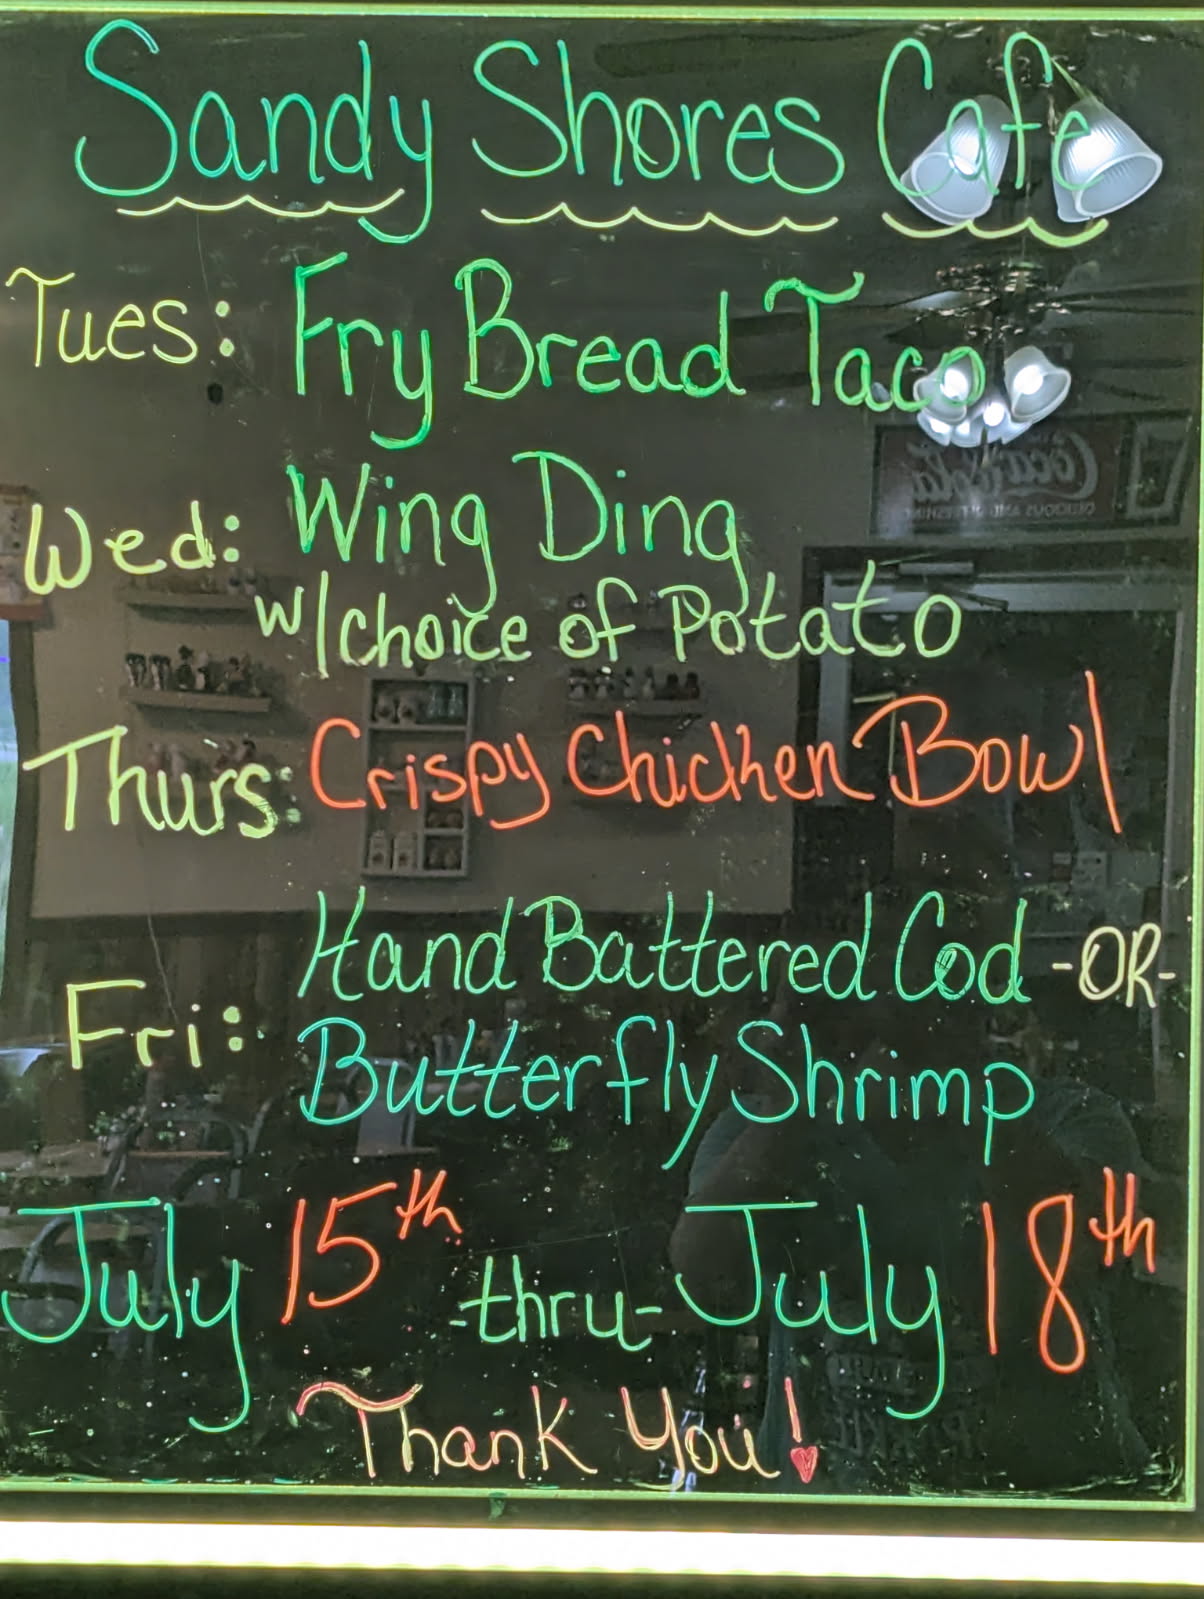 Sandy Shores Cafe
Tues: Fry Bread Taco
Wed: Wing Ding
w/choice of Potato
Thurs: Crispy Chicken Bowl
Fri: Hand Battered Cod -OR-
Butterfly Shrimp
July 15th -thru- July 18th
Thank You!
Coca-Cola